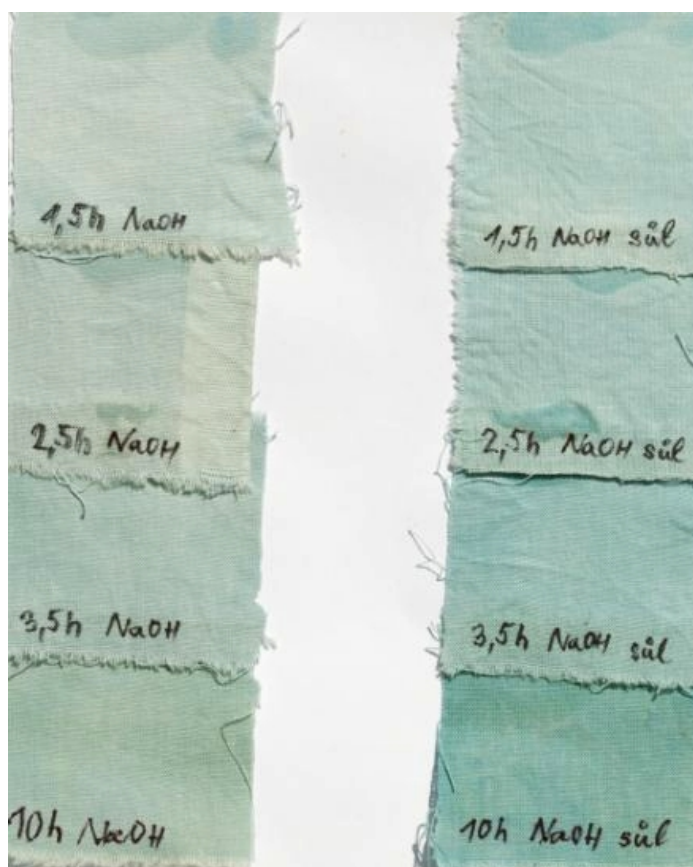 1,5h NaOH
2,5h NaOH
3,5h NaOH
10h NaOH
1,5h NaOH sůl
2,5h NaOH sůl
3,5h NaOH sůl
10h NaOH sůl